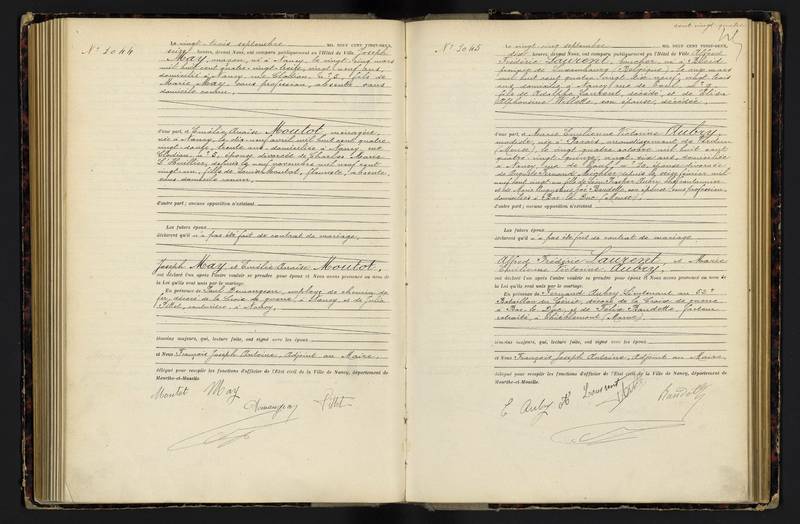 cent vingt quatre
N° 1044
Le vingt-trois septembre MIL NEUF CENT VINGT-DEUX,
heures, devant Nous, ont comparu publiquement en l'Hôtel de Ville Joseph
May, maçon, né à Nancy, le vingt cinq mars
mil huit cent quatre-vingt-treize, vingt neuf ans,
domicilié à Nancy, rue Clodion, n° 3, fils de
May, sans profession, absente sans
domicile connu.
d'une part, et Emélie Anaïse Moutot, ménagère,
née à Nancy, le dix-neuf avril mil huit cent quatre
vingt douze, trente ans, domiciliée à Nancy, rue
Clodion, n° 3, épouse divorcée de Charles Marie
depuis le novembre mil neuf cent
vingt un, fille de Louise Moutot, absente,
sans domicile connu.
d'autre part; aucune opposition n'existant
Les futurs époux
déclarent qu'il n'a pas été fait de contrat de mariage.
Joseph May et Emélie Anaïse Moutot,
ont déclaré l'un après l'autre vouloir se prendre pour époux et Nous avons prononcé au nom de
la Loi qu'ils sont unis par le mariage.
En présence de Paul employé de chemin de
fer, décoré de la Croix de guerre, à Nancy, et de Julie
Pillet, couturière, à Nancy,
témoins majeurs, qui, lecture faite, ont signé avec les époux
et Nous François Joseph Antoine, Adjoint au Maire,
délégué pour recevoir les fonctions d'officier de l'Etat civil de la Ville de Nancy, département de
Meurthe-et-Moselle.
Moutot May
Pillet
N° 1045
Le vingt-cinq septembre MIL NEUF CENT VINGT-DEUX,
dix heures, devant Nous, ont comparu publiquement en l'Hôtel de Ville Alfred
Frédéric Laurent, boucher, né à
Luxembourg (Belgique), le onze mars
mil huit cent quatre vingt dix neuf, vingt trois
ans, domicilié à Nancy, rue de
fils de Adolphe Laurent, décédé, et de Elisa
Alphonsine son épouse, décédée.
d'une part, et Marie Emilienne Victorine Aubry,
modiste, née à arrondissement de Verdun
(Meuse), le vingt quatre octobre mil huit cent
quatre vingt quinze, vingt six ans, domiciliée
à Nancy, rue de épouse divorcée
de Auguste depuis le seize février mil
neuf cent vingt un, fille de Aubry,
et de Marie son épouse, sans profession,
domiciliés à Bar-le-Duc (Meuse),
d'autre part; aucune opposition n'existant
Les futurs époux
déclarent qu'il n'a pas été fait de contrat de mariage.
Alfred Frédéric Laurent et Marie
Emilienne Victorine Aubry,
ont déclaré l'un après l'autre vouloir se prendre pour époux et Nous avons prononcé au nom de
la Loi qu'ils sont unis par le mariage.
En présence de Fernand Aubry, Lieutenant au
Bataillon du Génie, décoré de la Croix de guerre,
à Bar-le-Duc, et de Félix Baudotte, facteur
retraité, à
témoins majeurs, qui, lecture faite, ont signé avec les époux
et Nous François Joseph Antoine, Adjoint au Maire,
délégué pour recevoir les fonctions d'officier de l'Etat civil de la Ville de Nancy, département de
Meurthe-et-Moselle.
E Aubry Laurent